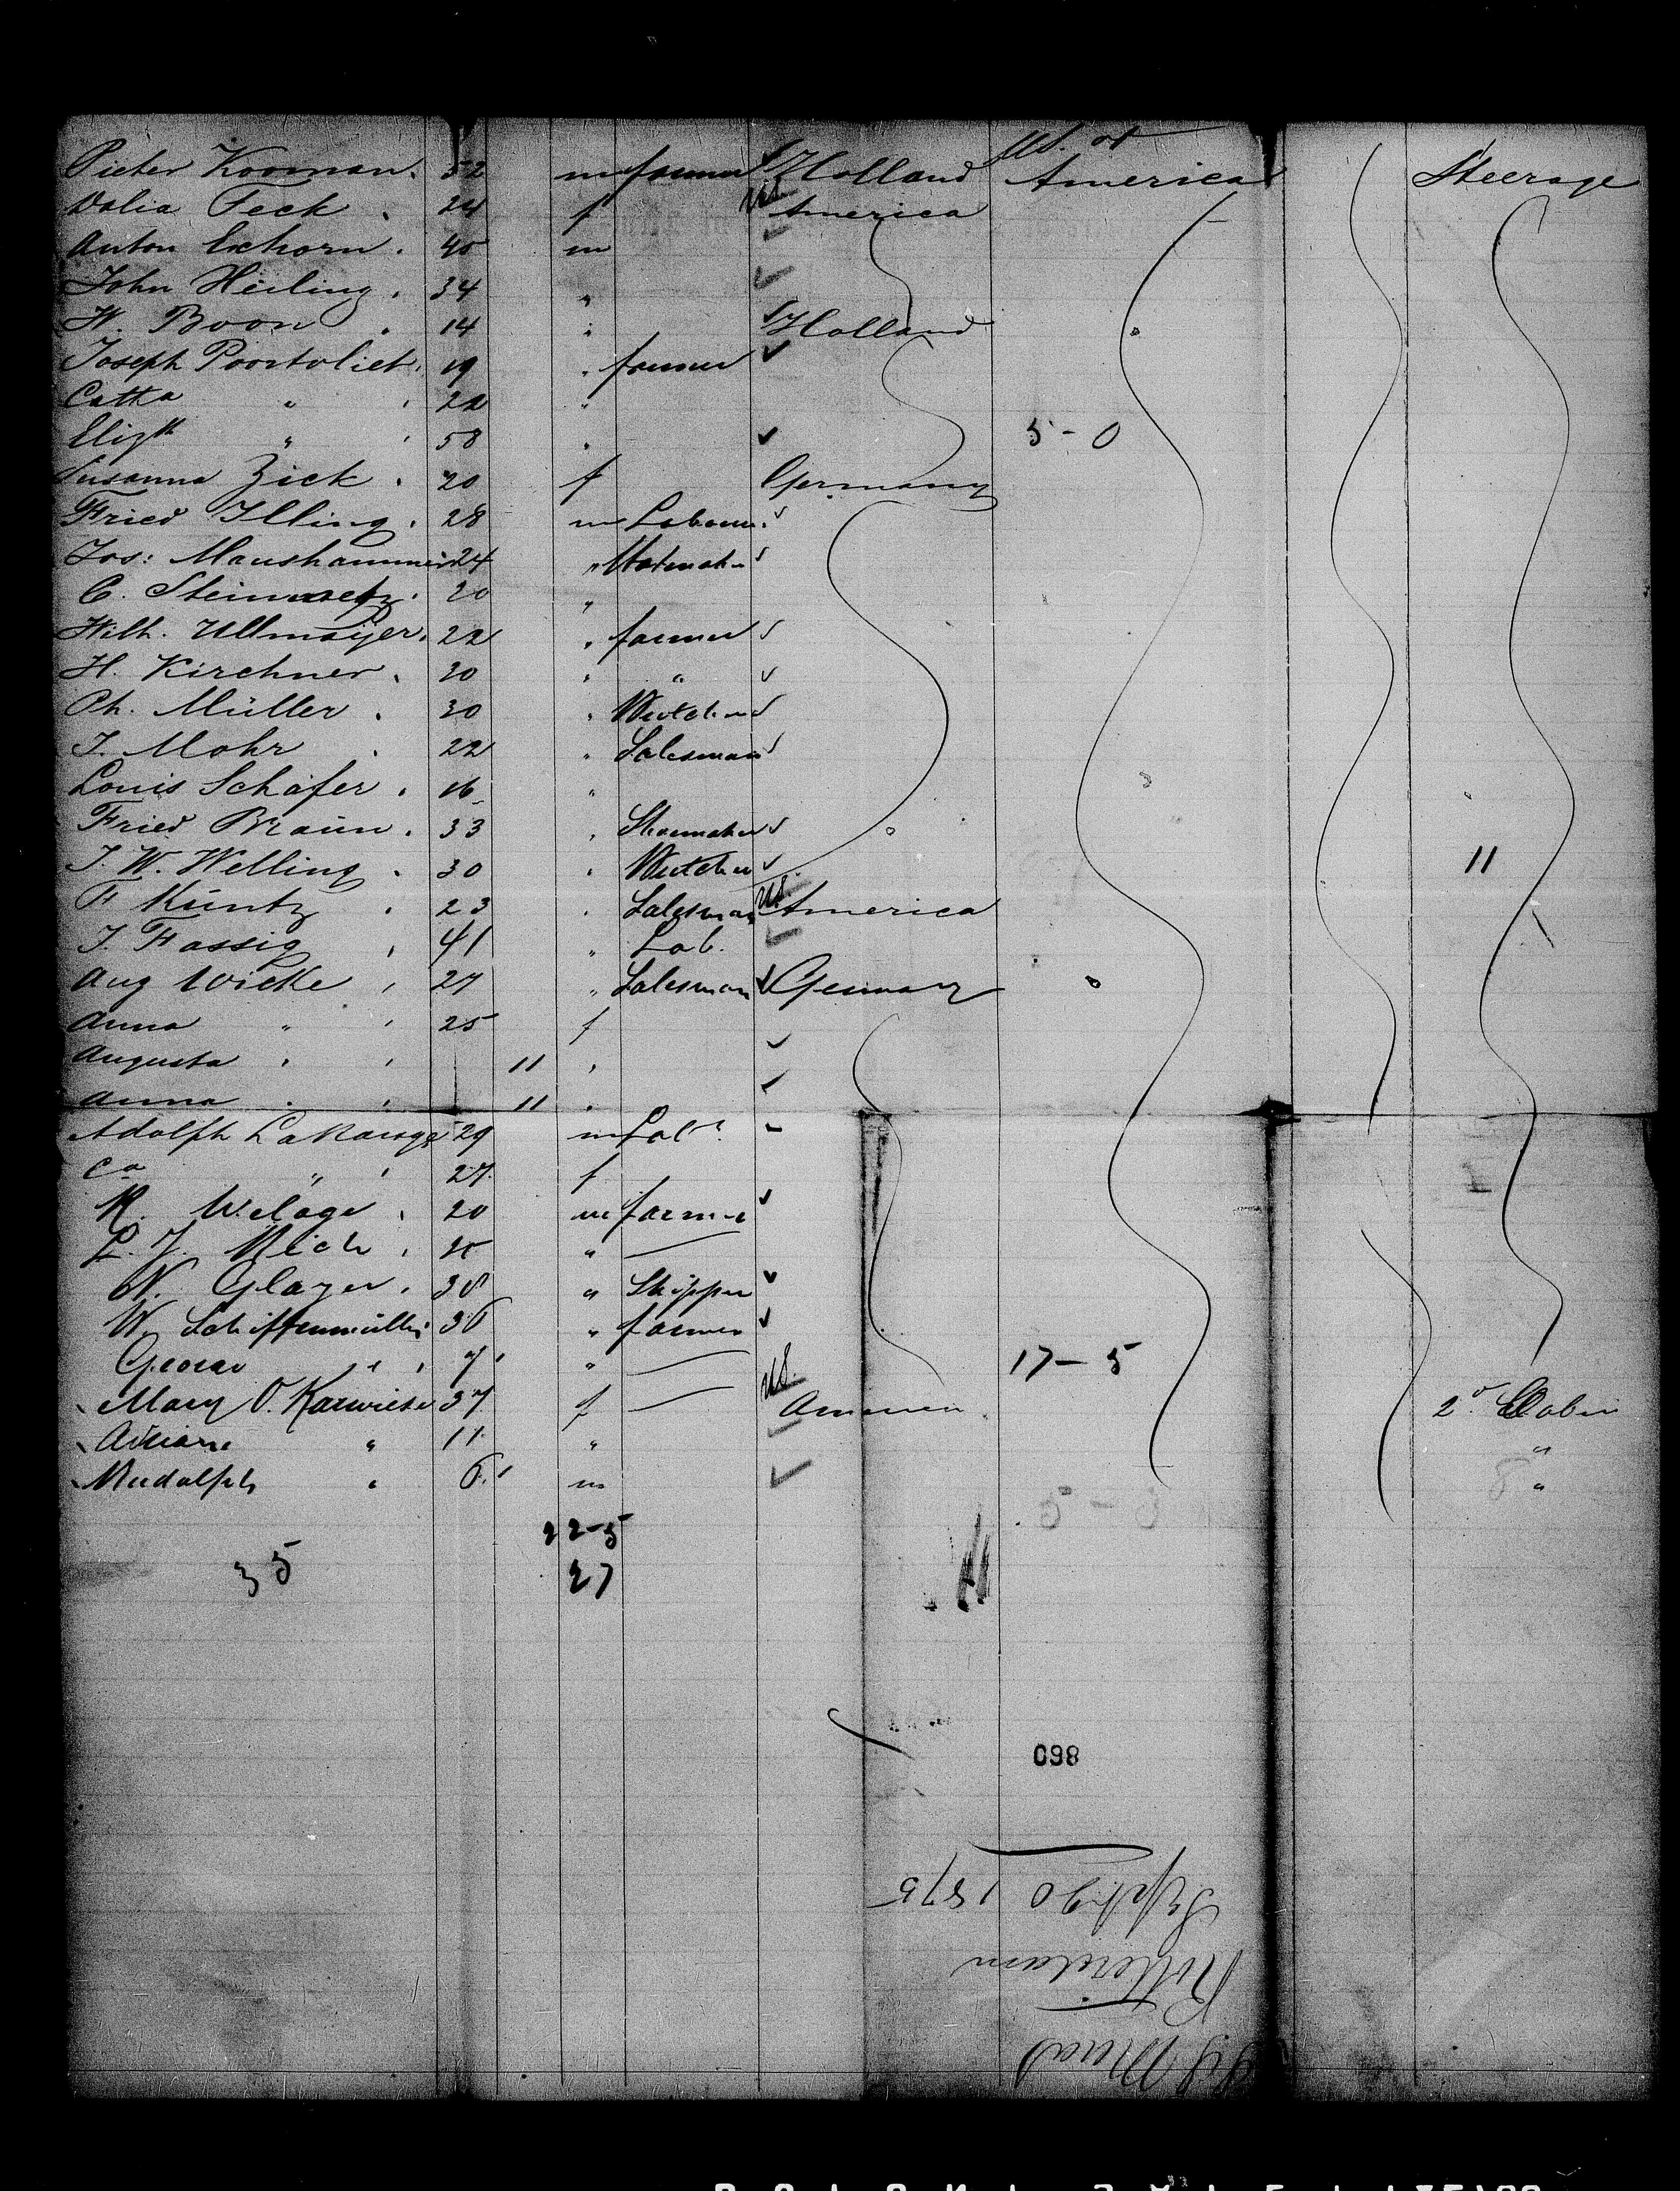 Us. of
Pieter Kooman. 52 m farmer Holland America Steerage
Dalia Feck . 24 f US America
Anton Exhorn . 40 m
John Heiling . 34 "
W. Boon . 14 " Holland
Joseph Poortvliet . 19 " farmer
Catha " . 22 "
Elizth " . 58 " 5-0
Susanna Zick . 20 f Germany
Fried Illing . 28 m
Jos: Maushammer 24 "
C. Steinmetz . 20 "
Wilh. Ullmayer . 22 " farmer
H. Kirchner . 30 " "
Ph. Müller . 30 "
J. Mohr . 22 " Salesman
Louis Schäfer . 16 "
Fried Braun . 33 " Shoemaker
J. W. Welling . 30 " 11
F Küntz . 23 " Salesman US. America
J. Fassig . 41 " Lab.
Aug Wicke . 27 " Salesman Germany
Anna " . 25 f
Augusta " . 11 "
Anna " . 11 "
Adolph 29 m Labr.
Ca " . 27 f
20 m farmer
L. J. "
N. Glazer . 38 " Skipper
W. Schiffenmüller 36 " farmer
George " . 7 " 17-5
Mary O. 37 f US. America 2d Cabin
" 11 " "
Rudolph " 6 m "
22-5
35 27
098
SS Maas
Rotterdam
Sept 20 1875